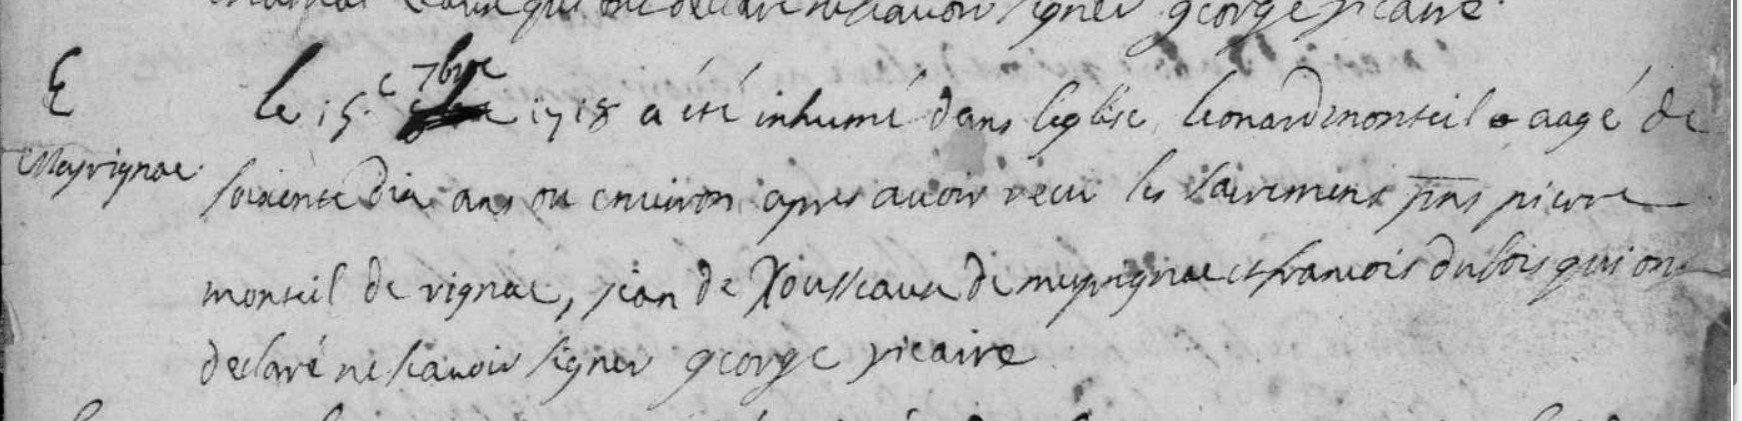 qui ont declaré ne scavoir signer george vicaire.
E
le 15.e 7bre 1718 a été inhumé dans leglise leonard monteil aagé de
Meyrignac.
soixente dix ans ou environ apres avoir receu les sacrements pnts pierre
monteil de vignac, jean de Rousseaux de meyrignac et francois dubois qui on
declaré ne scavoir signer george vicaire